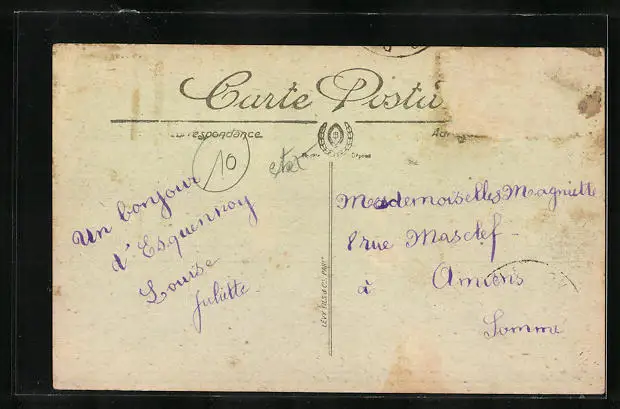 Carte Posta
respondance
10
état
Un bonjour
d'Esquennoy
Louise
Juliette
Mademoiselles Magniette
8 rue Masclef
à Amiens
Somme
LÉVY FILS & CIE, PARIS